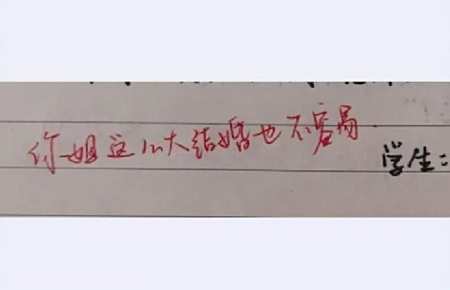 你姐这么大结婚也不容易
学生：